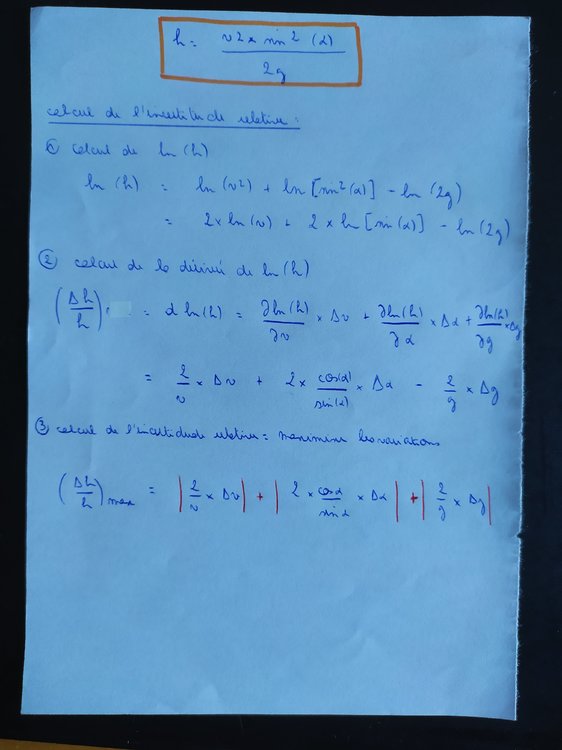 h = v² × sin² (α) / 2g
calcul de l'incertitude relative :
① calcul de ln (h)
ln (h) = ln (v²) + ln [sin² (α)] - ln (2g)
= 2 × ln (v) + 2 × ln [sin (α)] - ln (2g)
② calcul de la dérivée de ln (h)
(Δh / h) = d ln (h) = ∂ln (h) / ∂v × Δv + ∂ln (h) / ∂α × Δα + ∂ln (h) / ∂g × Δg
= 2 / v × Δv + 2 × cos(α) / sin(α) × Δα - 2 / g × Δg
③ calcul de l'incertitude relative = maximiser les variations
(Δh / h) max = | 2 / v × Δv | + | 2 × cosα / sinα × Δα | + | 2 / g × Δg |